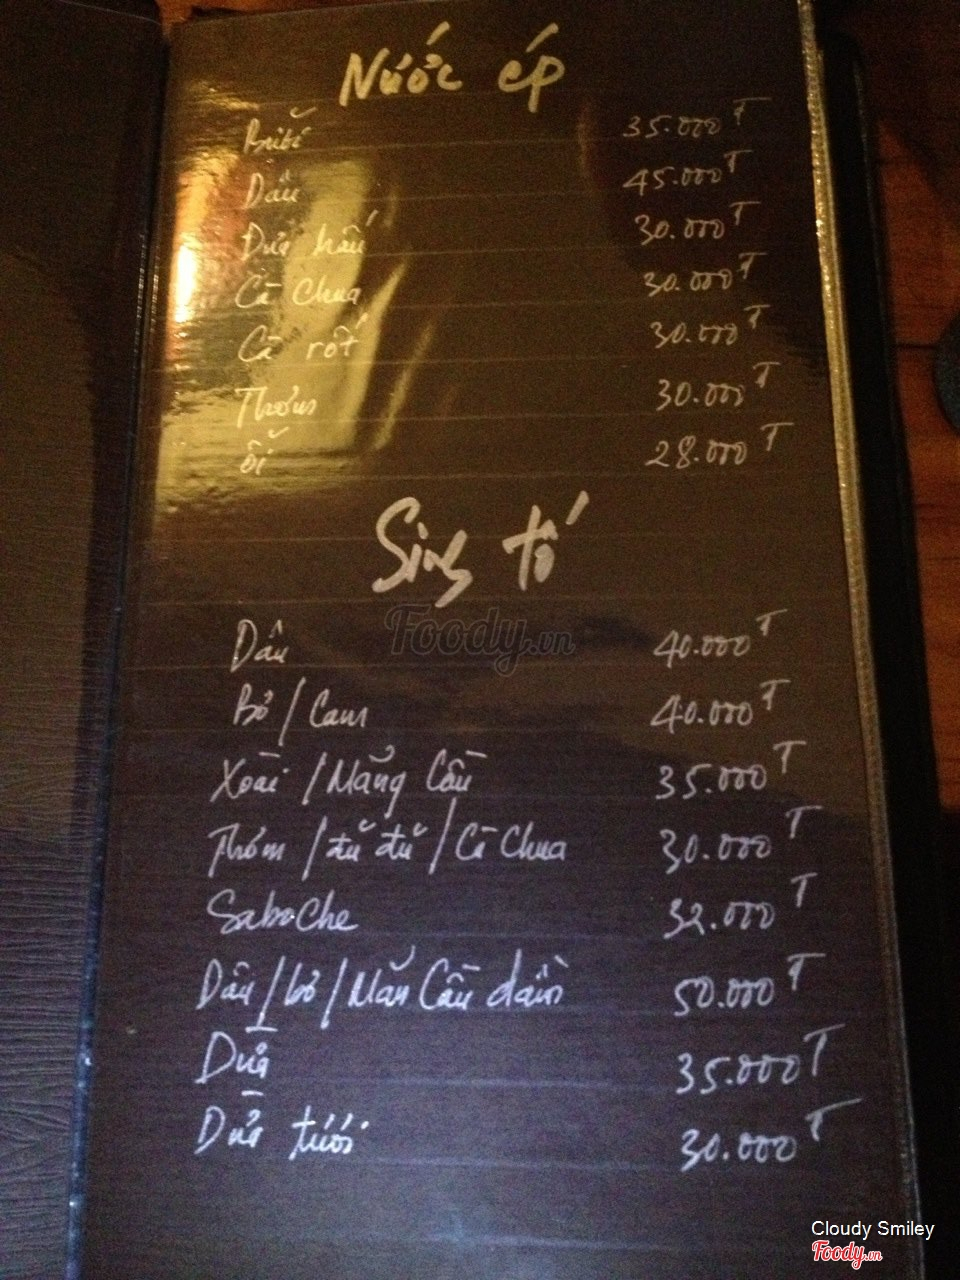 Nước ép
Bưởi 35.000đ
Dâu 45.000đ
Dưa hấu 30.000đ
Cà Chua 30.000đ
Cà rốt 30.000đ
Thơm 30.000đ
ổi 28.000đ
Sinh tố
Foody.vn
Dâu 40.000đ
Bơ / Cam 40.000đ
Xoài / Mãng Cầu 35.000đ
Thơm / đu đủ / Cà Chua 30.000đ
Saboche 32.000đ
Dâu / bơ / Mãn Cầu dầm 50.000đ
Dừa 35.000đ
Dừa tươi 30.000đ
Cloudy Smiley
Foody.vn